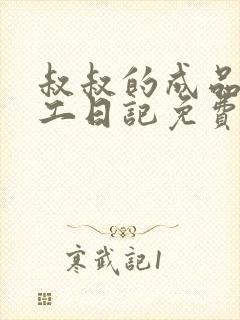 叔叔的成品
工日記免費
寒武記1